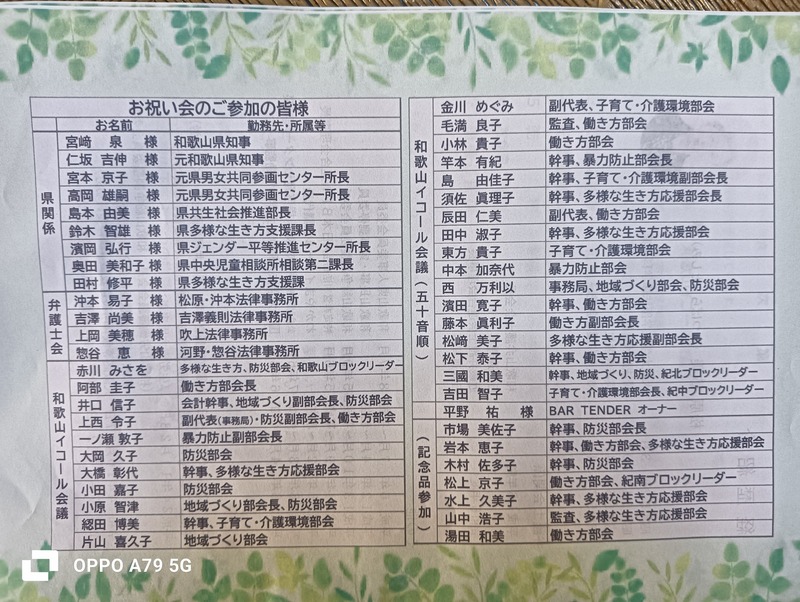 お祝い会のご参加の皆様
お名前 勤務先・所属等
県関係
宮﨑 泉 様 和歌山県知事
仁坂 吉伸 様 元和歌山県知事
宮本 京子 様 元県男女共同参画センター所長
高岡 雄嗣 様 元県男女共同参画センター所長
島本 由美 様 県共生社会推進部長
鈴木 智雄 様 県多様な生き方支援課長
濱岡 弘行 様 県ジェンダー平等推進センター所長
奥田 美和子 様 県中央児童相談所相談第二課長
田村 修平 様 県多様な生き方支援課
弁護士会
沖本 易子 様 松原・沖本法律事務所
吉澤 尚美 様 吉澤義則法律事務所
上岡 美穂 様 吹上法律事務所
惣谷 恵 様 河野・惣谷法律事務所
和歌山イコール会議
赤川 みさを 多様な生き方、防災部会、和歌山ブロックリーダー
阿部 圭子 働き方部会長
井口 信子 会計幹事、地域づくり副部会長、防災部会
上西 令子 副代表(事務局)・防災副部会長、働き方部会
一ノ瀬 敦子 暴力防止副部会長
大岡 久子 防災部会
大橋 彰代 幹事、多様な生き方応援部会
小田 嘉子 防災部会
小原 智津 地域づくり部会長、防災部会
綛田 博美 幹事、子育て・介護環境部会
片山 喜久子 地域づくり部会
和歌山イコール会議(五十音順)
金川 めぐみ 副代表、子育て・介護環境部会
毛満 良子 監査、働き方部会
小林 貴子 働き方部会
竿本 有紀 幹事、暴力防止部会長
島 由佳子 幹事、子育て・介護環境副部会長
須佐 眞理子 幹事、多様な生き方応援部会長
辰田 仁美 副代表、働き方部会
田中 淑子 幹事、多様な生き方応援部会
東方 貴子 子育て・介護環境部会
中本 加奈代 暴力防止部会
西 万利以 事務局、地域づくり部会、防災部会
濱田 寛子 幹事、働き方部会
藤本 眞利子 働き方副部会長
松﨑 美子 多様な生き方応援副部会長
松下 泰子 幹事、働き方部会
三國 和美 幹事、地域づくり、防災、紀北ブロックリーダー
吉田 智子 子育て・介護環境部会長、紀中ブロックリーダー
(記念品参加)
平野 祐 様 BAR TENDER オーナー
市場 美佐子 幹事、防災部会長
岩本 恵子 幹事、働き方部会、多様な生き方応援部会
木村 佐多子 幹事、防災部会
松上 京子 働き方部会、紀南ブロックリーダー
水上 久美子 幹事、多様な生き方応援部会
山中 浩子 監査、多様な生き方応援部会
湯田 和美 働き方部会
OPPO A79 5G